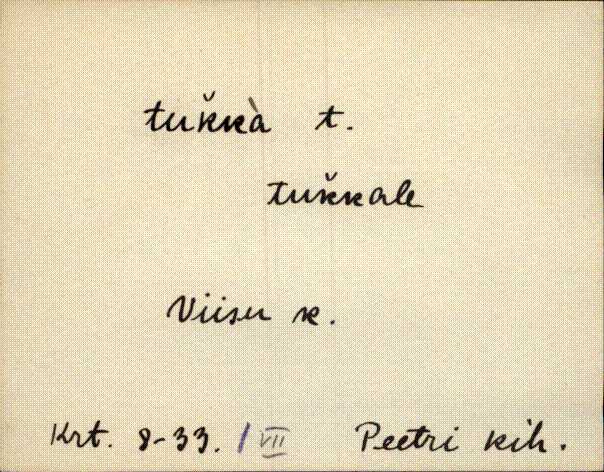 tuǩkà t.
tuǩkale
Viisu k.
Krt. 8-33. / VII Peetri kih.